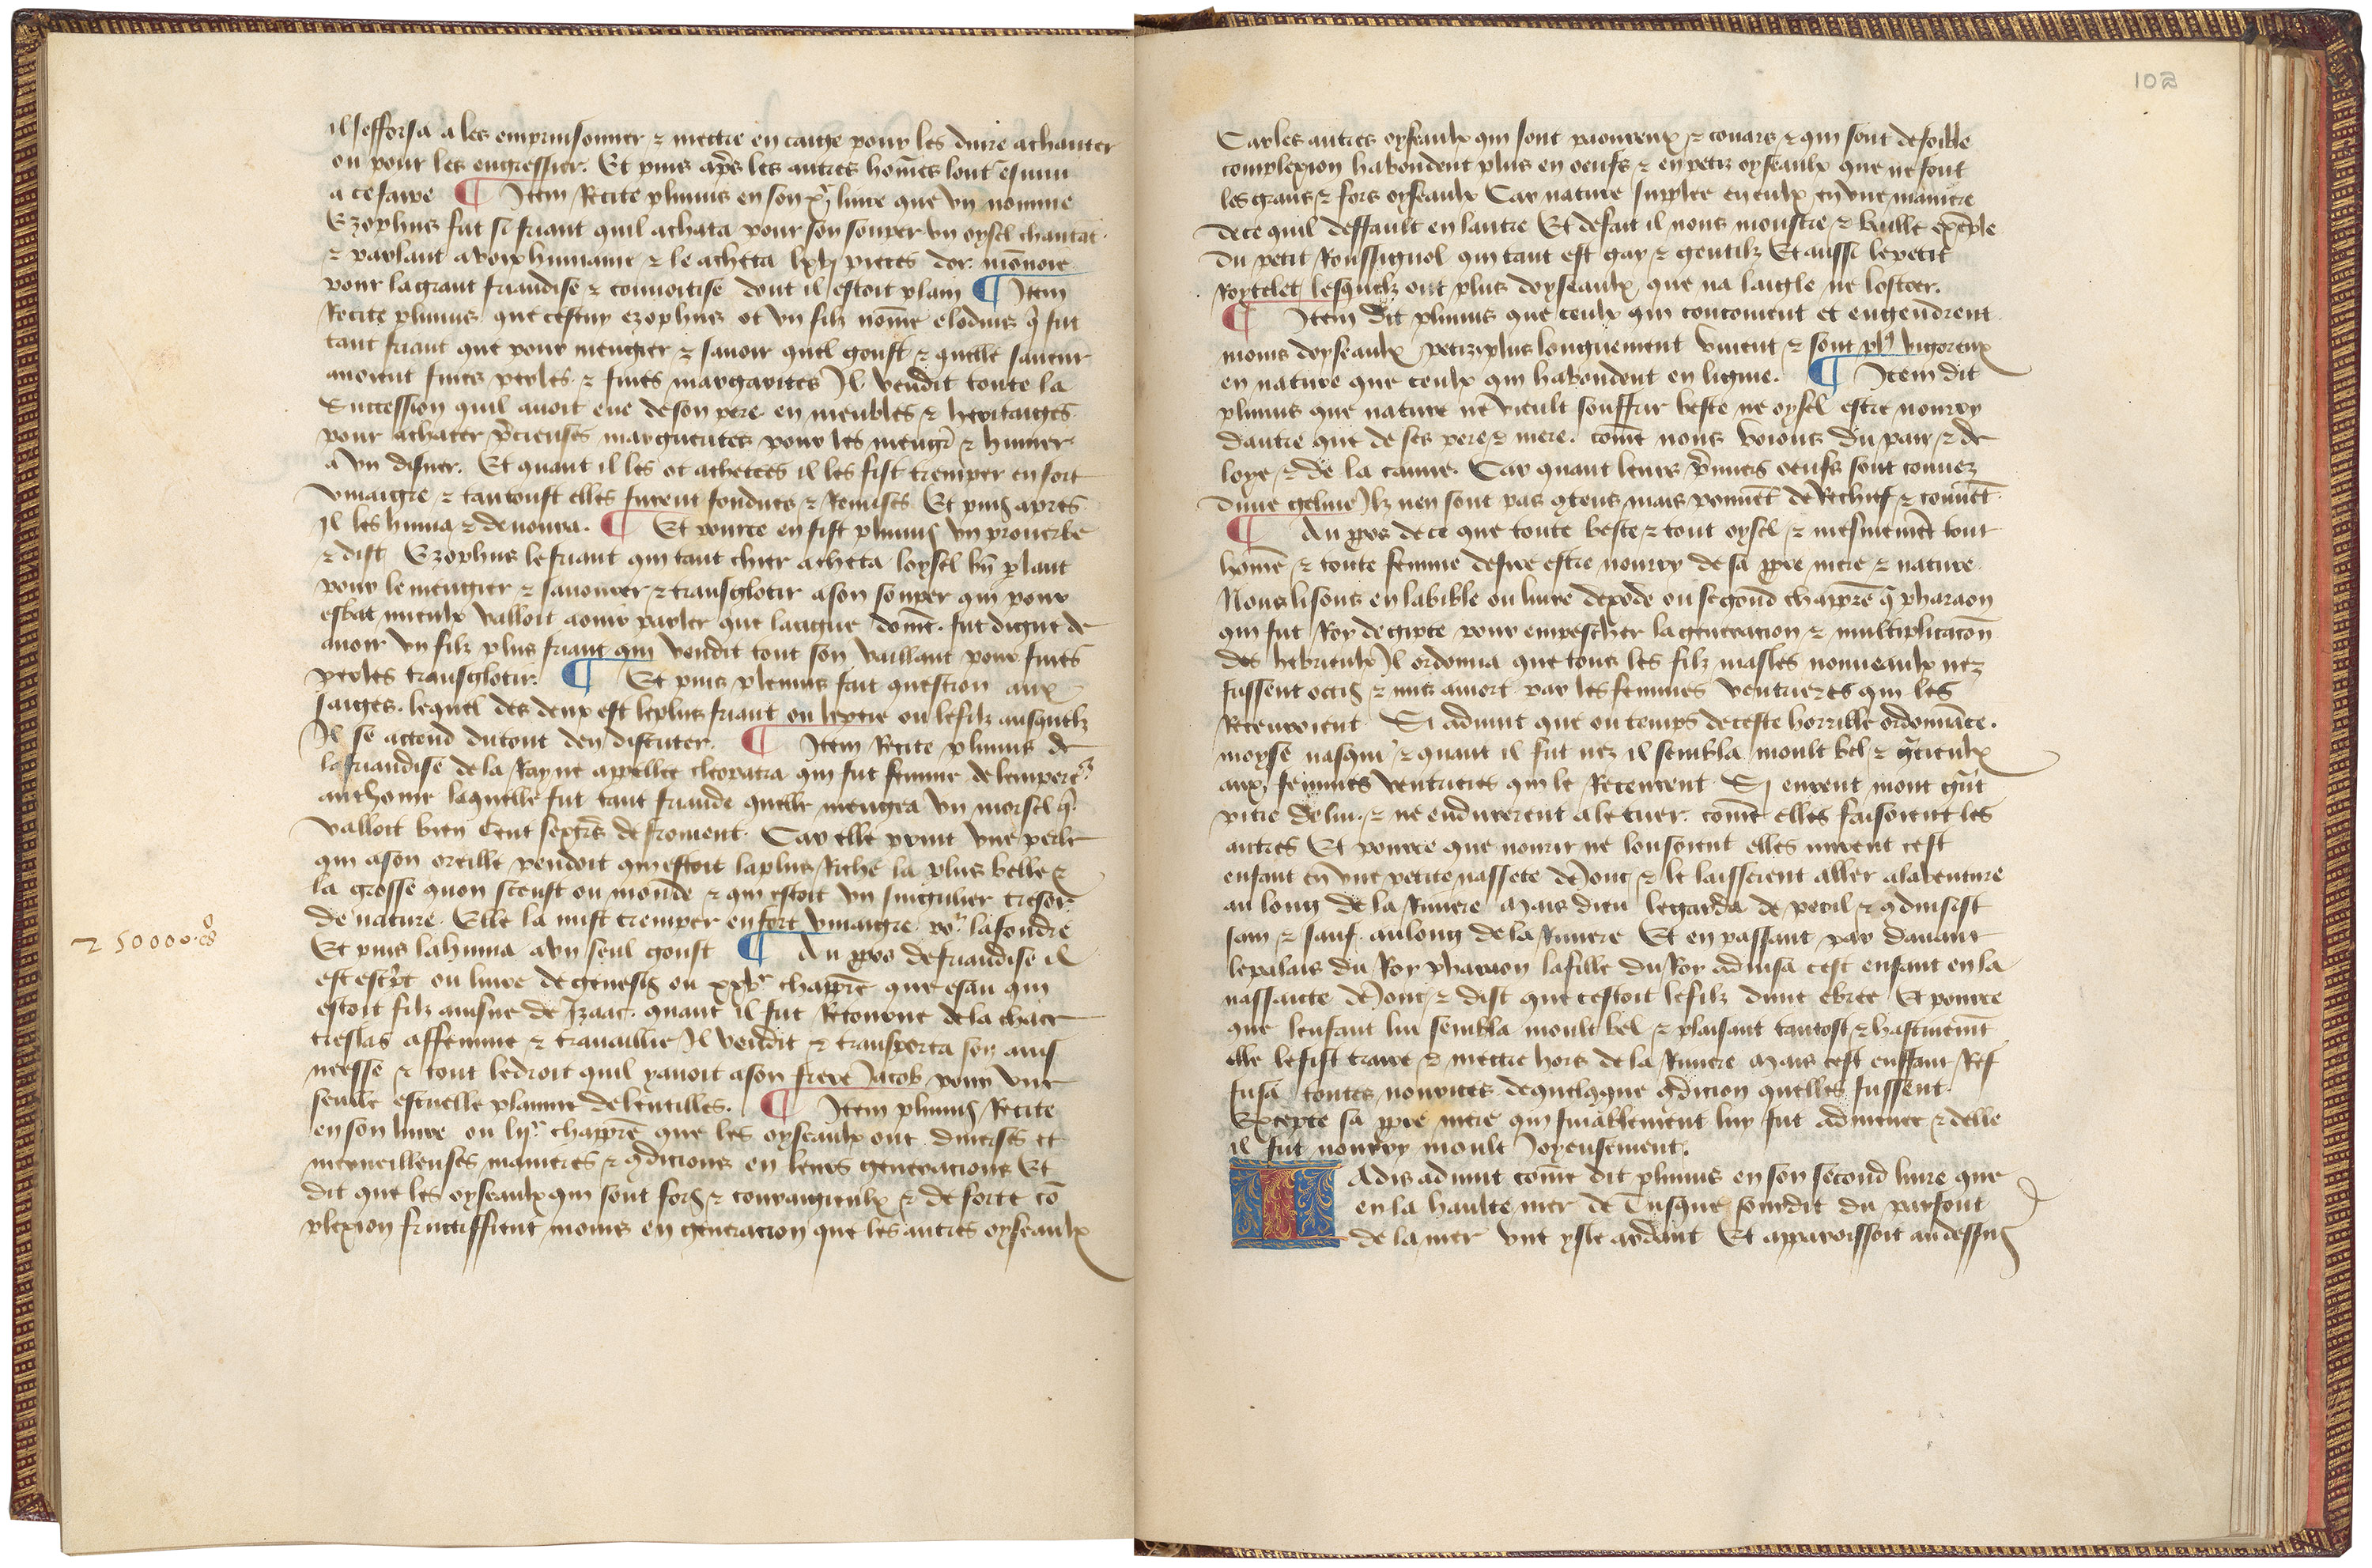 il sefforsa a les emprisonner ⁊ mettre en caige pour les duire a chanter
ou pour les engressier. Et puis ap̃s les autres hom̃es lont ẽsuiui
a ce faire ¶ Item Recite plinius en son xe liure que vn nomme
Ezophus fut si friant quil achata pour son souper vn oysel chantãt
⁊ parlant a voix humaine ⁊ le acheta pieces dor. mõnoie
pour la grant friandise ⁊ conuoitise dont il estoit plain ¶ Item
Recite plinius que cestuy ezophus ot vn filz nõme clodius q̃ fut
tant friant que pour mengier ⁊ sauoir quel goust ⁊ quelle saueur
auoient fines perles ⁊ fines margarites Il vendit toute la
Succession quil auoit eue de son pere en meubles ⁊ heritaiges
pour achater p̃cieuses marguerites pour les meng̃r ⁊ humer
a vn disner. Et quant il les ot achetees il les fist tremper en fort
vinaigre ⁊ tantoust elles furent fondues ⁊ Remises Et puis apres
Il les huma ⁊ deuoura. ¶ Et pource en fist plinius vn prouerbe
⁊ dist Ezophus le friant qui tant chier acheta loysel bñ p̃lant
pour le mengier ⁊ sauourer ⁊ transglotir a son souper qui pour
esbat mieulx valloit a ouir parler que fut digne de
auoir vn filz plus friant qui vendit tout son vaillant pour fines
perles transglotir. ¶ Et puis plenius fait question aux
saiges. lequel des deux est le plus friant ou le pere ou le filz ausquelz
Il se attend du tout den discuter. ¶ Item Recite plinius de
la friandise de la Rayne appellee cleopatra qui fut femme de lempere.r
anthoine laquelle fut tant friande quelle mengea vn morsel q̃
valloit bien Cent sext̃rs de froment. Car elle print vne perle
qui a son oreille pendoit qui estoit la plus Riche la plus belle ⁊
la grosse quon sceust ou monde ⁊ qui estoit vn singulier tresor
de nature. Elle la mist tremper en fort vinaigre po.r la fondre
⁊ 50000
Et puis la huma a vn seul goust ¶ Au ꝓpos de friandise il
est escp̃t ou liure de genesis ou xxve chapp̃re que esau qui
estoit filz aisne de Izaac. quant il fut Retourne de la chace
treslas affemme ⁊ trauaillie Il vendit ⁊ transporta son ains
neesse ⁊ tout le droit quil y auoit a son frere Jacob pour vne
seulle escuelle plainne de lentilles. ¶ Item plinius Recite
en son liure ou chapp̃re que les oyseaulx ont diuerses et
merueilleuses manieres ⁊ ꝯdicions en leurs generacions Et
dit que les oyseaulx qui sont fors ⁊ couraigieulx ⁊ de forte cõ
plexion fructiffient moins en generacion que les autres oyseaulx
102
Car les autres oyseaulx qui sont paoureux ⁊ couars ⁊ qui sont de foible
complexion habondent plus en oeufs ⁊ en petiz oyseaulx que ne font
les grans ⁊ fors oyseaulx Car nature supplee en eulx en vne maniere
de ce quil deffault en lautre Et de fait il nous monstre ⁊ baille exẽple
du petit Roussignol qui tant est gay ⁊ gentilz Et aussi le petit
Roytelet lesquelz ont plus doyseaulx que na laigle ne lostoer.
¶ Item dit plinius que ceulx qui concoiuent et engendrent
moins doyseaulx petiz plus longuement viuent ⁊ sont pl9 vigoreux
en nature que ceulx qui habondent en lignie. ¶ Item dit
plinius que nature ne vieult souffrir beste ne oysel estre nourry
dautre que de ses pere ⁊ mere. com̃e nous voions du pan ⁊ de
loye ⁊ de la canne. Car quant leurs p̃miers oeufs sont couuez
dune geline Ilz nen sont pas ꝯtens mais ponnẽt de Rechief ⁊ couuẽt
¶ Au ꝓpos de ce que toute beste ⁊ tout oysel ⁊ mesmemẽt tout
hom̃e ⁊ toute femme desire estre nourry de sa ꝓpre mere ⁊ nature
Nous lisons en la bible ou liure dexode ou segond chapp̃re q̃ pharaon
qui fut Roy degipte pour empescher la generacion ⁊ multiplicaciõn
des hebrieulx Il ordonna que tous les filz masles nouueaulx nez
fussent occis ⁊ mis a mort par les femmes ventrieres qui les
Receuroient Si aduint que ou temps de ceste horrible ordonnãce.
moyse nasqui ⁊ quant il fut nez il sembla moult bel ⁊ g̃cieulx
aux femmes ventrieres qui le Receurent Si eurent mont g̃nt
pitie de lui. ⁊ ne endurerent a le tuer. com̃e elles faisoient les
autres Et pource que nourir ne lousoient elles mirent cest
enfant en vne petite nassete de Jonc ⁊ le laisserent aller a laventure
au long de la Riuiere Mais dieu le garda de peril ⁊ ꝯduisist
sain ⁊ sauf au long de la Riuiere Et en passant par dauant
le palais du Roy pharaon la fille du Roy aduisa cest enfant en la
nassaite de Jonc ⁊ dist que cestoit le filz dune ebree Et pource
que lenfant lui sembla moult bel ⁊ plaisant tantost ⁊ hastiuemẽt
elle le fist traire ⁊ mettre hors de la Riuiere Mais cest enffant Ref
fusa toutes nourrices de quelcque ꝯdicion quelles fussent.
Excepte sa ꝓpre mere qui finablement luy fut admenee ⁊ delle
il fut nourry moult Joyeusement.
Iadis aduint com̃e dit plinius en son second liure que
en la haulte mer de Tusque sourdit du parfont
de la mer vne ysle ardant Et apparoissoit au dessus